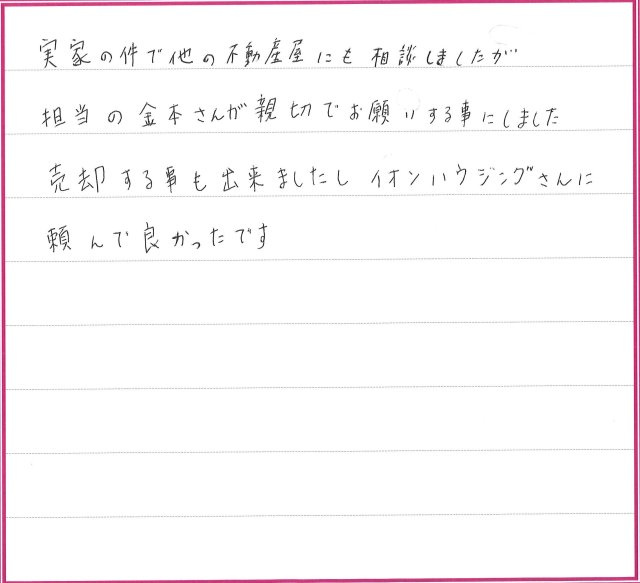 実家の件で他の不動産屋にも相談しましたが
担当の金本さんが親切でお願いする事にしました
売却する事も出来ましたし イオンハウジングさんに
頼んで良かったです